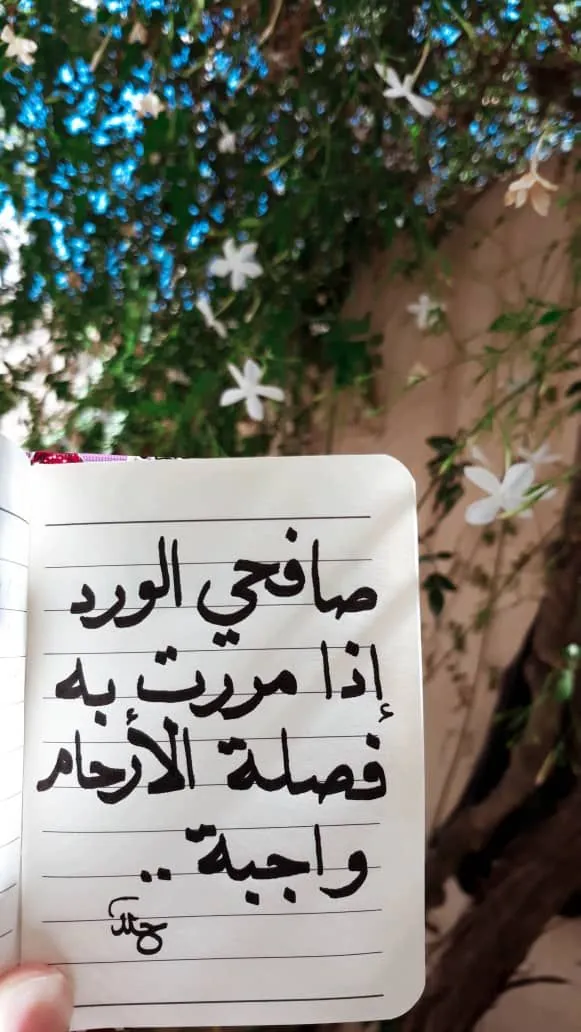 صافحي الورد
إذا مررت به
فصلة الأرحام
واجبة ..